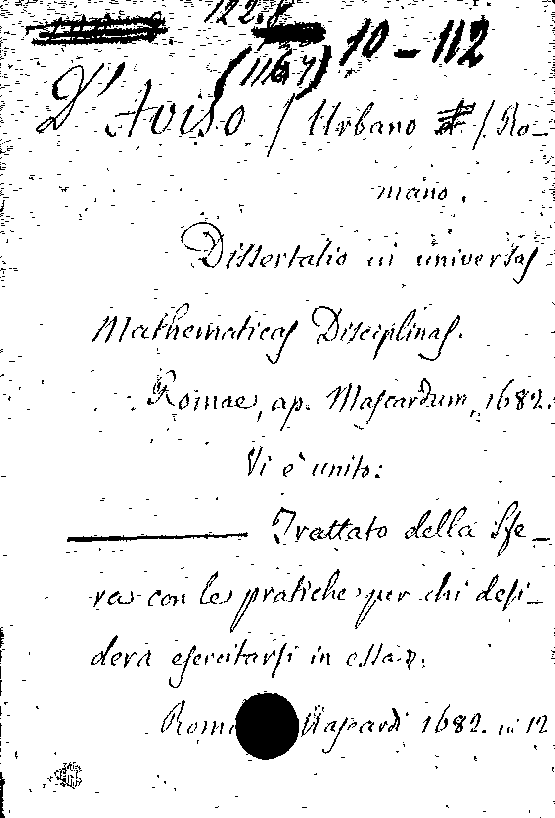 122.8
10-112
(116 7)
D'Aviso / Urbano / Ro-
mano.
Dissertatio in universas
Mathematicas Disciplinas.
Romae, ap. Mascardum, 1682.
Vi è unito:
Trattato della Sfe-
ra con le pratiche per chi desi-
dera esercitarsi in essa.
Roma Mascardi 1682. in 12